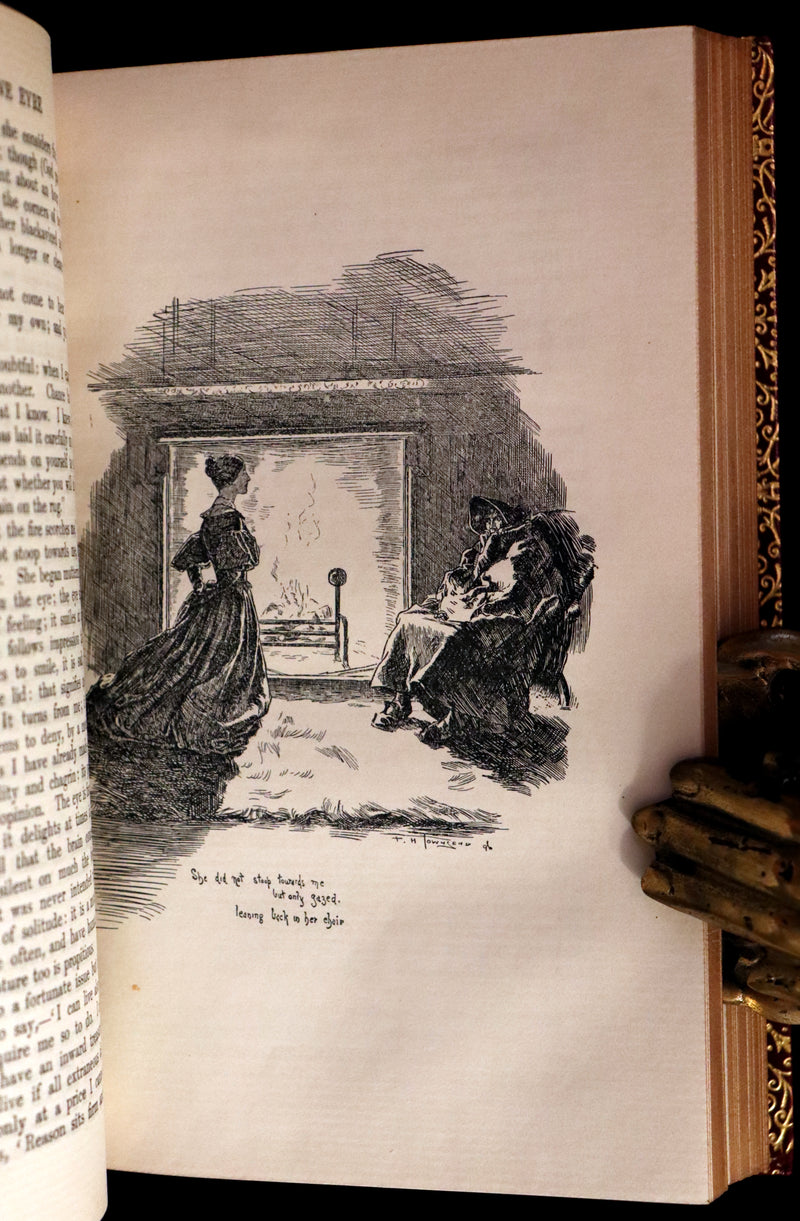 NE EYRE
she consider
though (God
nt about an
the corners of
her blackavised
longer or
not come to
my own; and
doubtful: when I
nother. Chance
at I know. I
as laid it carefully
pends on yourself
t whether you
in on the rug."
the fire scorches
t stoop towards
She began
the eye; the
feeling; it
follows
to smile, it is
lid: that
It turns from
ms to deny, by a
I have already
lity and chagrin:
opinion. The eye is
it delights at times
l that the brain
silent on much the
was never intended
of solitude: it is a
often, and have
ture too is propitious
a fortunate issue
say,—'I can live
quire me so to do.
have an inward
live if all
only at a price I
'Reason sits firm
F. H. TOWNSEND 96
She did not stoop towards me
but only gazed.
leaning back in her chair